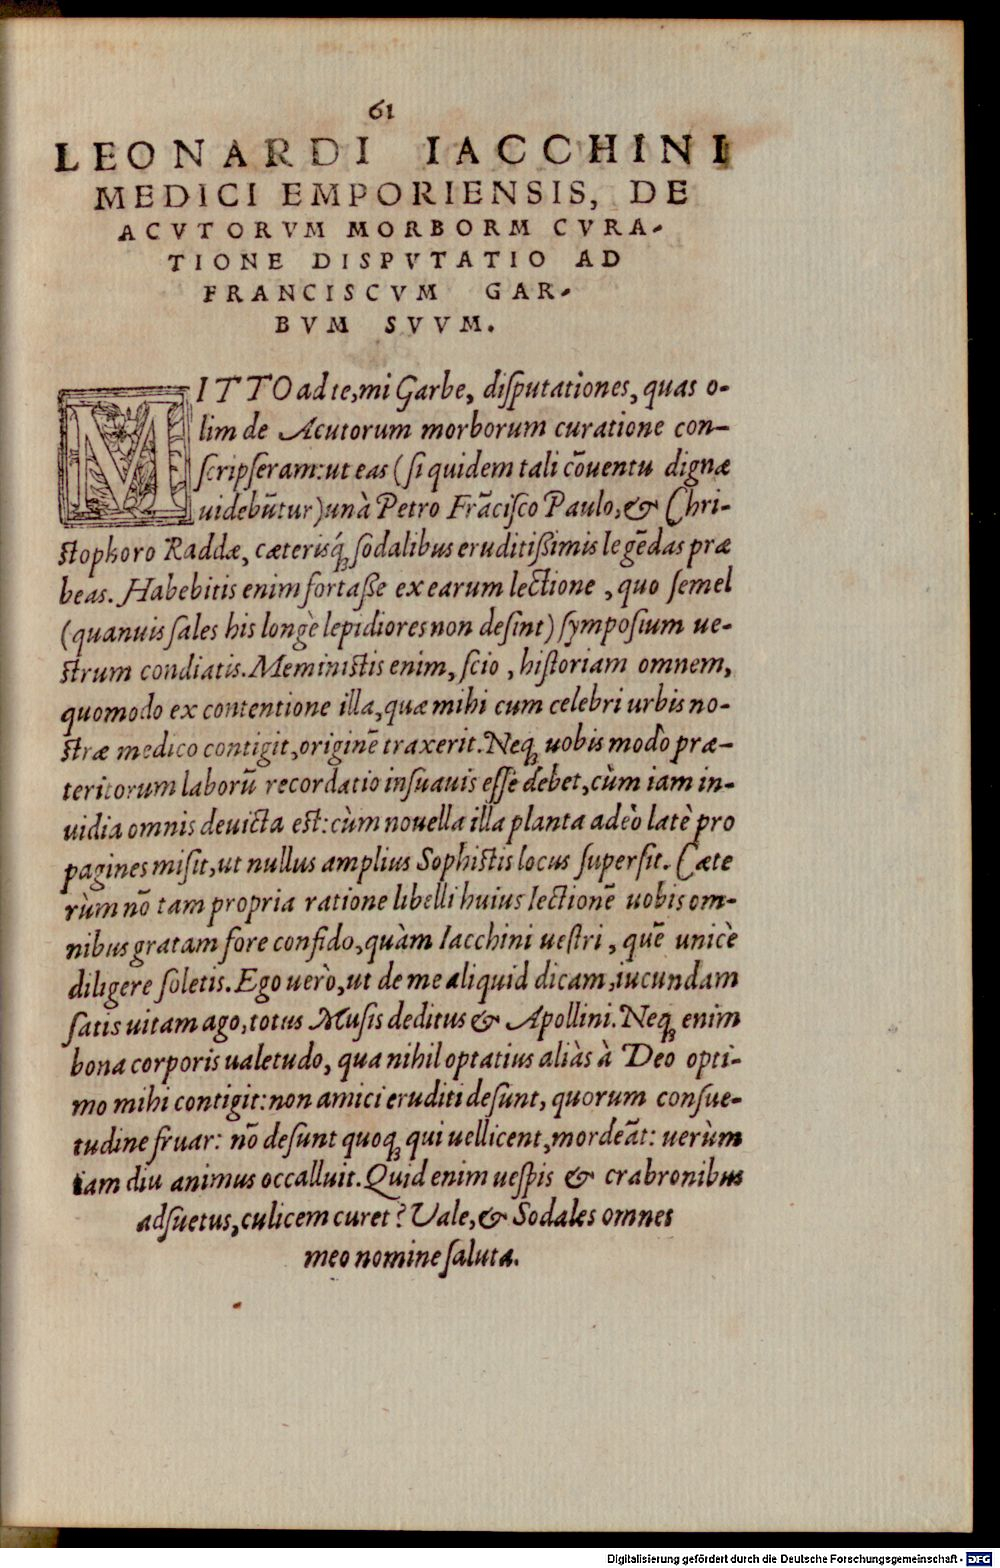 61
LEONARDI IACCHINI
MEDICI EMPORIENSIS, DE
ACVTORVM MORBORM CVRA-
TIONE DISPVTATIO AD
FRANCISCVM GAR-
BVM SVVM.
MITTO ad te, mi Garbe, disputationes, quas o-
lim de Acutorum morborum curatione con-
scripseram: ut eas (si quidem tali cōuentu dignæ
uidebūtur) unà Petro Frācisco Paulo, & Chri-
stophoro Raddæ, cæterisq́; sodalibus eruditißimis legēdas præ
beas. Habebitis enim fortaße ex earum lectione, quo semel
(quanuis sales his longè lepidiores non desint) symposium ue-
strum condiatis. Meministis enim, scio, historiam omnem,
quomodo ex contentione illa, quæ mihi cum celebri urbis no-
stræ medico contigit, originē traxerit. Neq; uobis modò præ-
teritorum laborū recordatio insuauis esse debet, cùm iam in-
uidia omnis deuicta est: cùm nouella illa planta adeò latè pro
pagines misit, ut nullus amplius Sophistis locus supersit. Cæte
rùm nō tam propria ratione libelli huius lectionē uobis om-
nibus gratam fore confido, quàm Iacchini uestri, quē unicè
diligere soletis. Ego uerò, ut de me aliquid dicam, iucundam
satis uitam ago, totus Musis deditus & Apollini. Neq; enim
bona corporis ualetudo, qua nihil optatius aliàs à Deo opti-
mo mihi contigit: non amici eruditi desunt, quorum consue-
tudine fruar: nō desunt quoq; qui uellicent, mordeāt: uerùm
iam diu animus occalluit. Quid enim uespis & crabronibus
adsuetus, culicem curet? Vale, & Sodales omnes
meo nomine saluta.
Digitalisierung gefördert durch die Deutsche Forschungsgemeinschaft - DFG